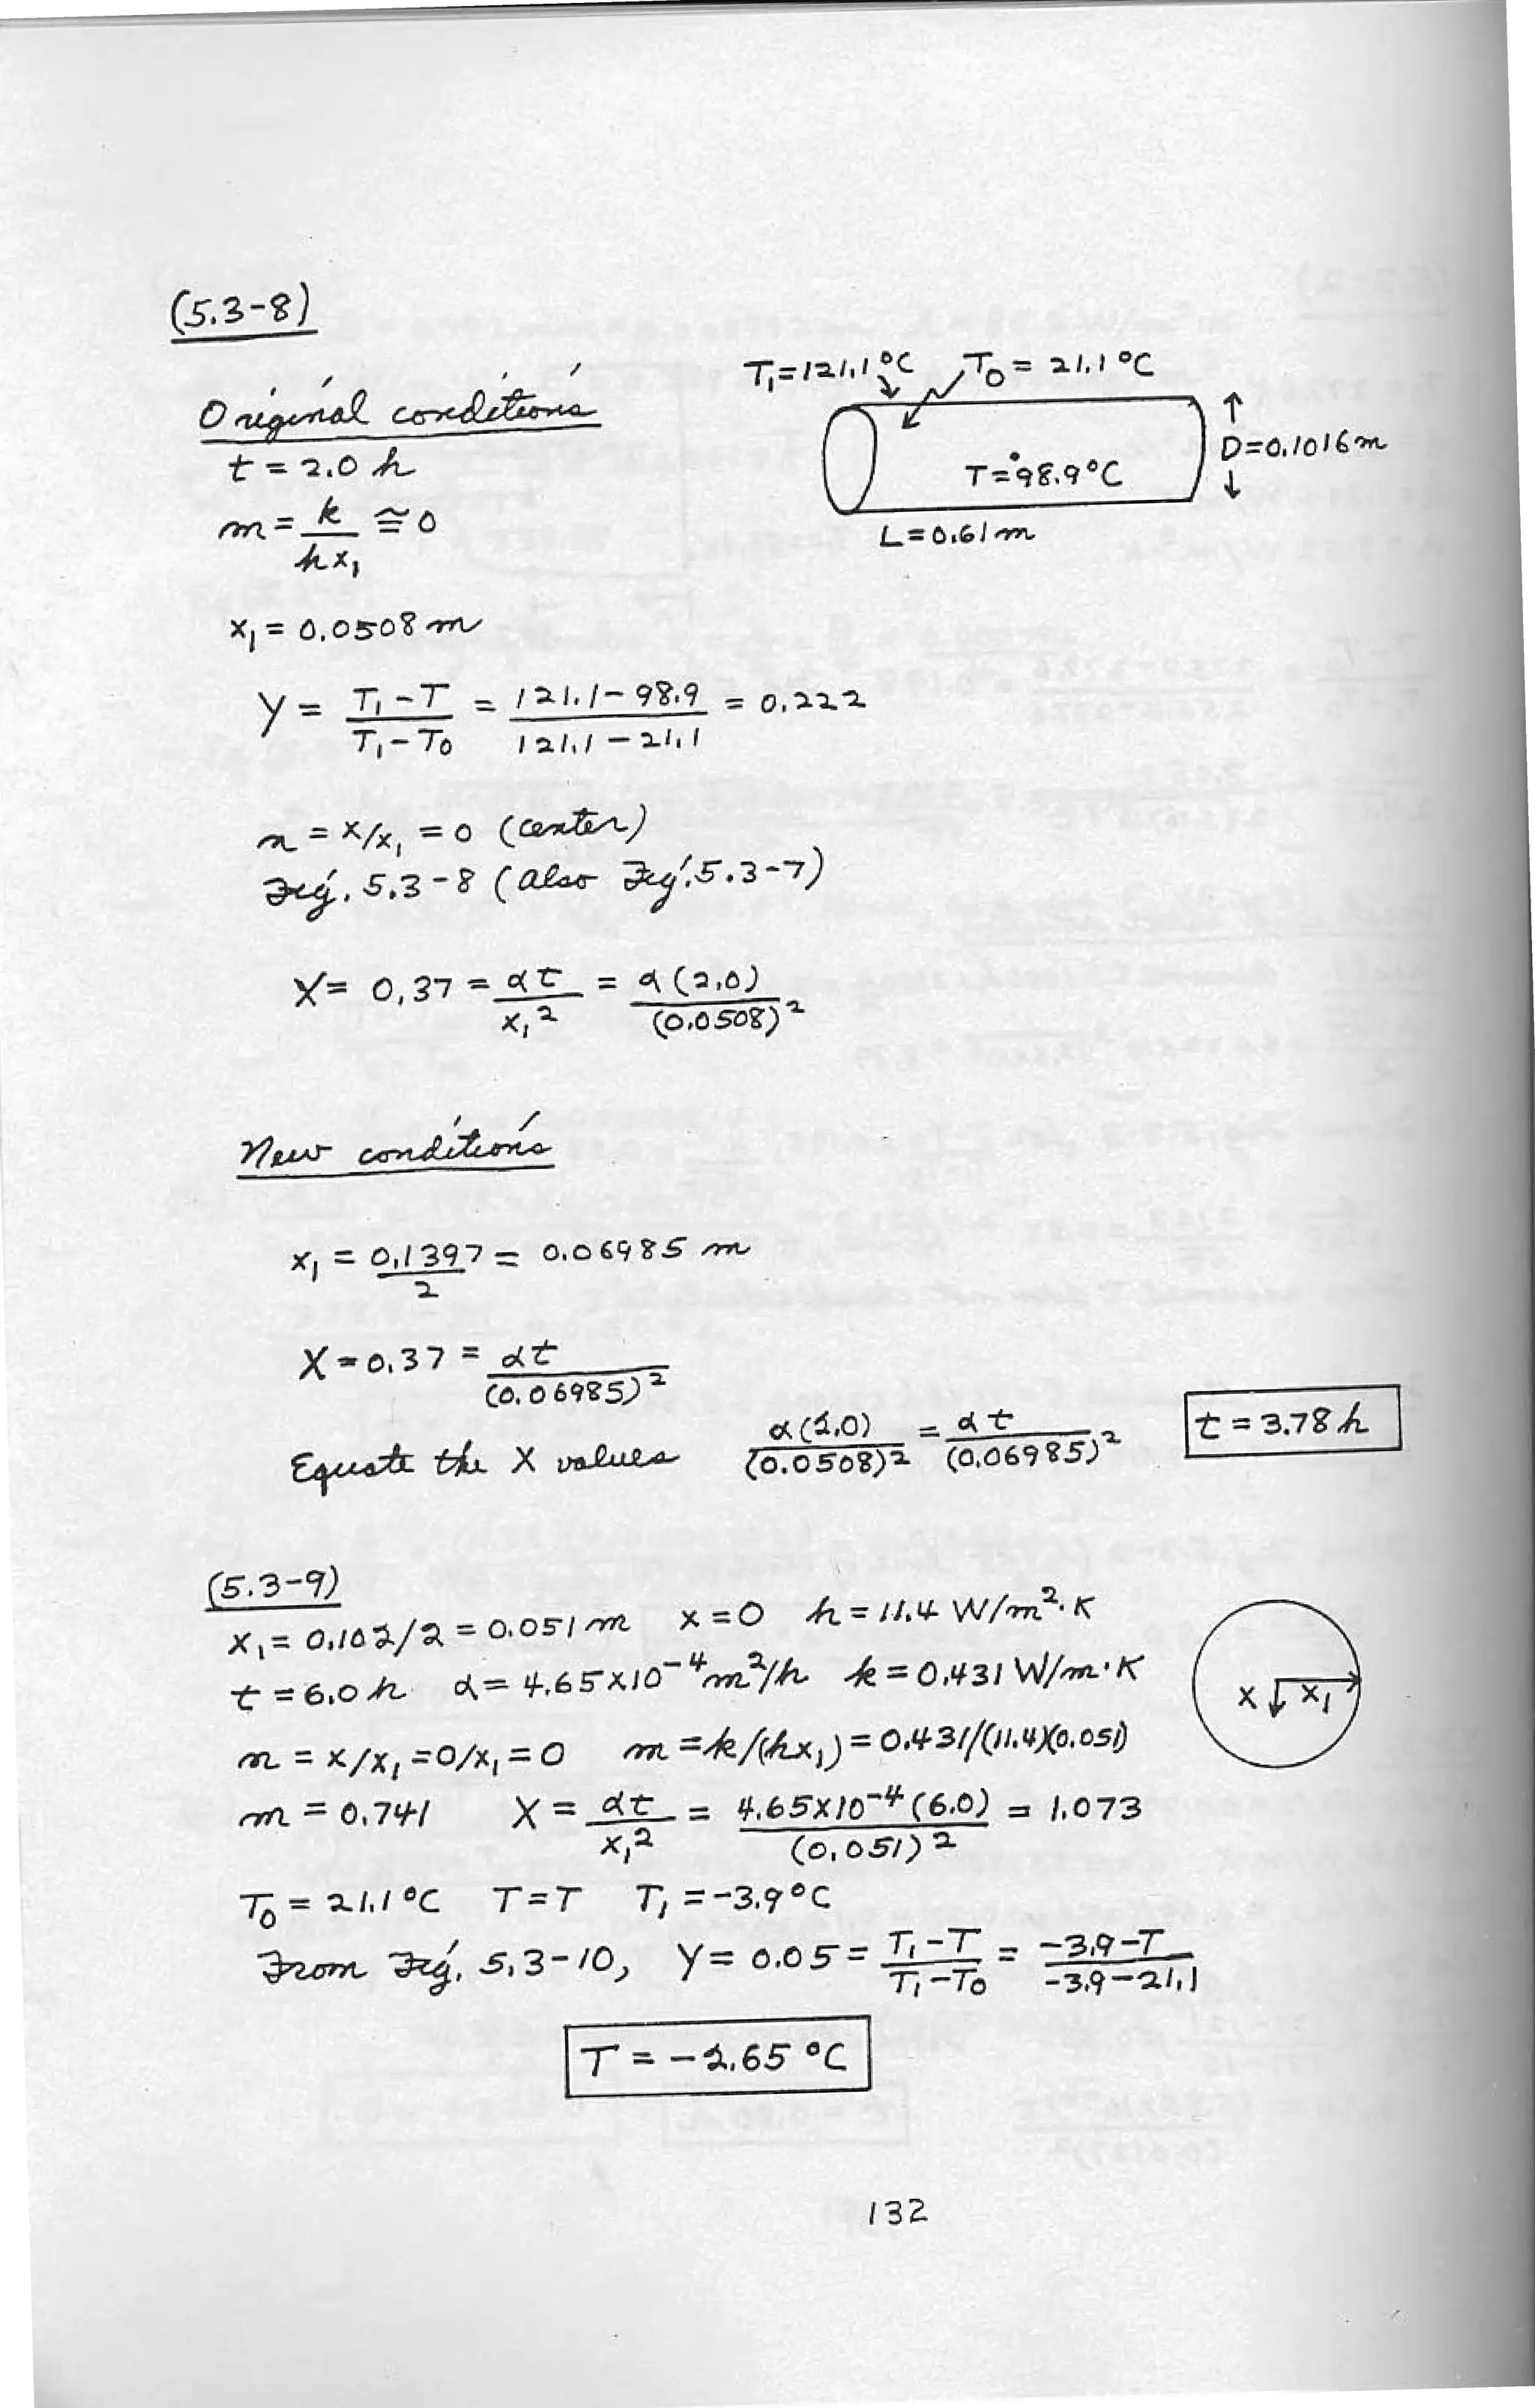 (5.3-8)
T₁=121.1°C T₀ = 21.1 °C
Original conditions
D=0.1016m
t = 2.0 h
T=98.9°C
m = k/(hx₁) ≅ 0
L=0.61m
x₁ = 0.0508 m
Y = (T₁-T)/(T₁-T₀) = (121.1-98.9)/(121.1-21.1) = 0.222
n = x/x₁ = 0 (center)
Fig. 5.3-8 (also Fig. 5.3-7)
X = 0.37 = αt/x₁² = α(2.0)/(0.0508)²
New conditions
x₁ = 0.1397/2 = 0.06985 m
X = 0.37 = αt/(0.06985)²
Equate the X values α(2.0)/(0.0508)² = αt/(0.06985)² t = 3.78 h
(5.3-9)
x₁ = 0.102/2 = 0.051 m x = 0 h = 11.4 W/m²·K
t = 6.0 h α = 4.65x10⁻⁴ m²/h k = 0.431 W/m·K
x x₁
n = x/x₁ = 0/x₁ = 0 m = k/(hx₁) = 0.431/((11.4)(0.051))
m = 0.741 X = αt/x₁² = 4.65x10⁻⁴(6.0)/(0.051)² = 1.073
T₀ = 21.1 °C T=T T₁ = -3.9°C
From Fig. 5.3-10, Y = 0.05 = (T₁-T)/(T₁-T₀) = (-3.9-T)/(-3.9-21.1)
T = -2.65 °C
132